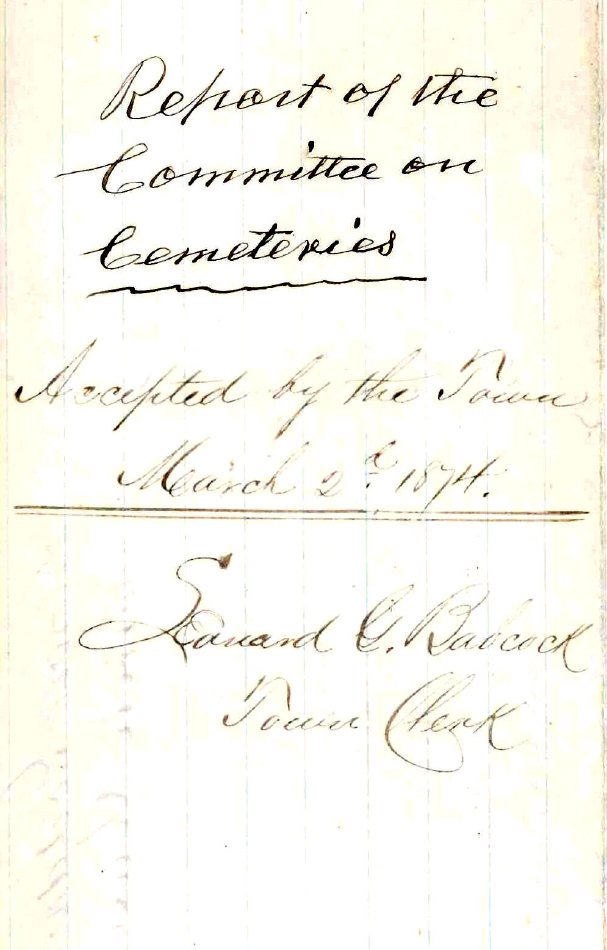 Report of the
Committee on
Cemeteries
Accepted by the Town
March 2d. 1874.
Edward G. Babcock
Town Clerk